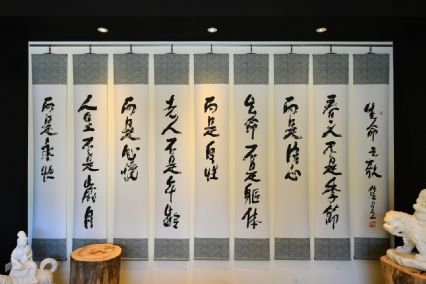 生命之歌
春天不是季節
而是心
生命不是軀體
而是性
老人不是年齡
而是
人生不是歲月
而是永恆